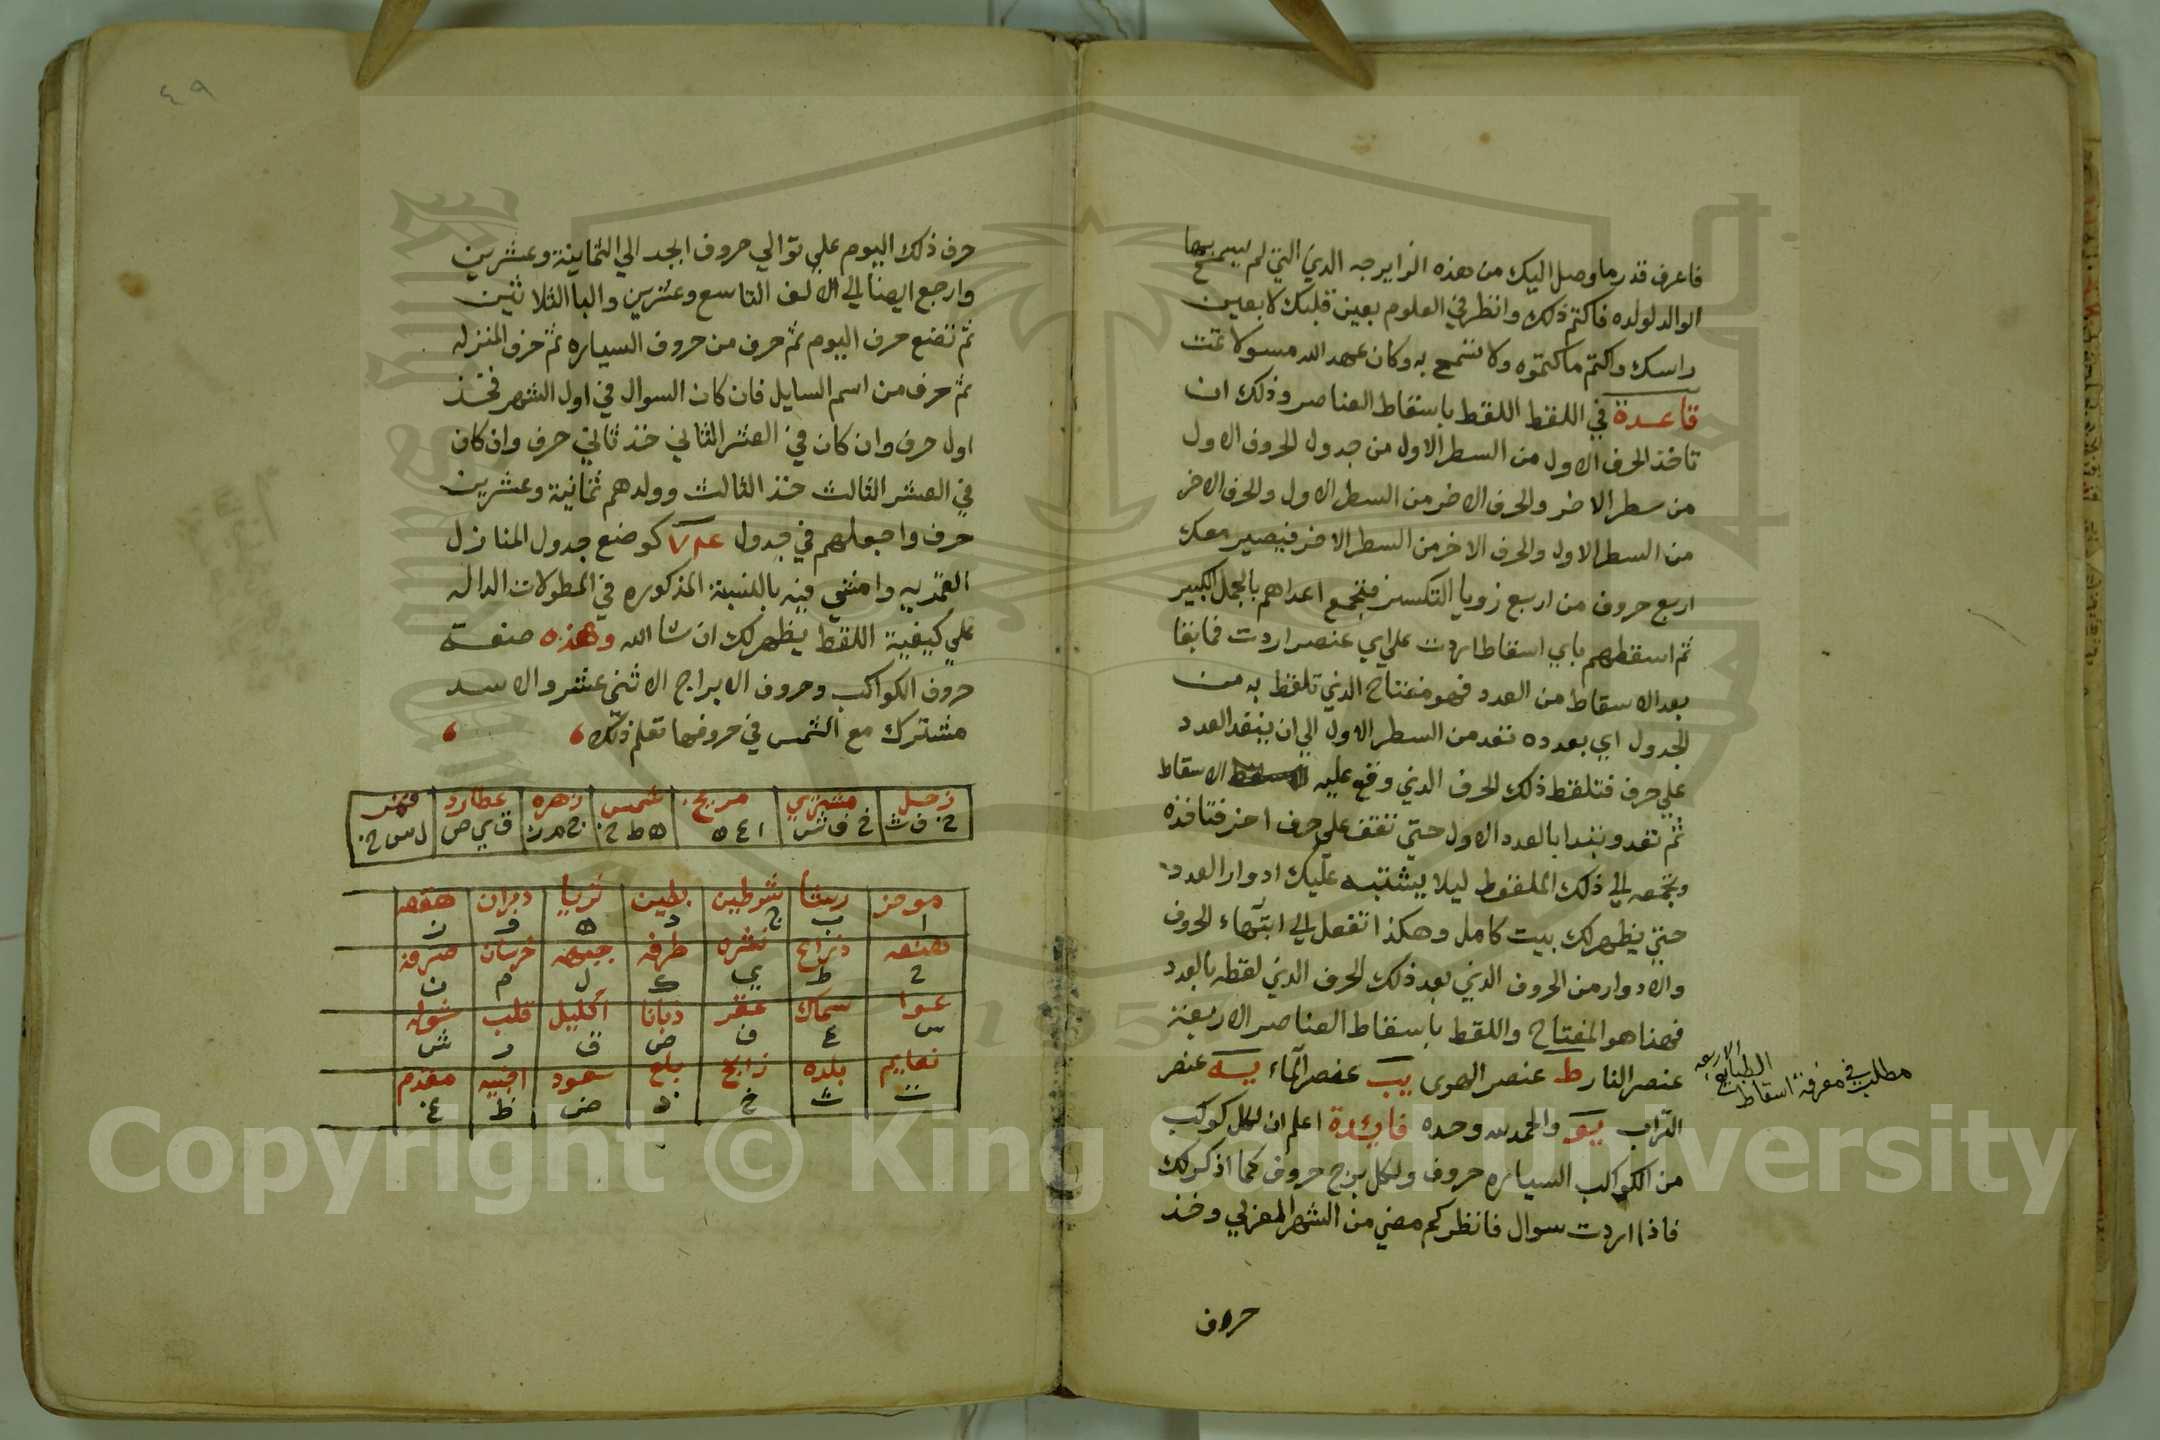 فاعرف قدر ما وصل اليك من هذه الزايرجه الذي التي لم يسمح بها
الوالد لولده فاكتم ذلك وانظر في العلوم بعين قلبك لا بعين
راسك واكتم ما كتموه ولا تسمح به وكان عهد الله مسولا تمت
قاعدة في اللقط اللقط باسقاط العناصر وذلك ان
تاخذ الحرف الاول من السطر الاول من جدول الحروف الاول
من سطر الاخر والحرف الاخر من السطر الاول والحرف الاخر
من السطر الاول والحرف الاخر من السطر الاخر فيصير معك
اربع حروف من اربع زويا التكسير فتجمع اعداهم بالجمل الكبير
ثم اسقطهم باي اسقاط اردت علي اي عنصر اردت فما بقا
بعد الاسقاط من العدد فهو مفتاح الذي تلقط به من
الجدول اي بعدده تعد من السطر الاول الي ان ينفد العدد
علي حرف فتلقط ذلك الحرف الذي وقع عليه الاسقاط
ثم تعد وتبدا بالعدد الاول حتي تقف علي حرف اخر فتاخذه
وتجمعه الي ذلك الملقوط ليلا يشتبه عليك ادوار العدد
حتي يظهر لك بيت كامل وهكذا تفعل الي ابتهاء الحروف
والادوار من الحروف الذي بعد ذلك الحرف الذي لقطه بالعدد
فهذا هو المفتاح واللقط باسقاط العناصر الاربعة
عنصر النار ط عنصر الهوى يب عنصر الماء يه عنصر
التراب يو والحمد لله وحده فايدة اعلم ان لكل كوكب
من الكواكب السياره حروف ولكل برج حروف كما اذكر لك
فاذا اردت سوال فانظر كم مضي من الشهر العربي وخذ
حروف
مطلب في معرفة اسقاط
الطبايع الاربعه
٤٩
حرف ذلك اليوم علي توالي حروف ابجد الي الثمانية وعشرين
وارجع ايضا الي الالف التاسع وعشرين والبا الثلاثين
ثم تضع حرف اليوم ثم حرف من حروف السياره ثم حرف المنزله
ثم حرف من اسم السايل فان كان السوال في اول الشهر فتخذ
اول حرف وان كان في العشر الثاني خذ ثاني حرف وان كان
في العشر الثالث خذ الثالث وولدهم ثمانية وعشرين
حرف واجعلهم في جدول كوضع جدول المنازل
القمريه وامشي فيه بالنسبة المذكوره في المطولات الداله
علي كيفية اللقط يظهر لك ان شا الله وهذه صنعة
حروف الكواكب وحروف الابراج الاثني عشر والاسد
مشترك مع الشمس في حروفها تعلم ذلك
زحل مشتري مريخ شمس زهره عطارد قمر
ق ي ص
موخر رشا شرطين بطين ثريا دبران هقعه
ا ب ج د ه و ز
هنعه ذراع نثره طرفه جبهه خرسان صرفه
ح ط ي ك ل م ن
عوا سماك غفر زبانا اكليل قلب شوله
س ع ف ص ق ر ش
نعايم بلده زابح بلع سعود اخبيه مقدم
ت ث خ ذ ض ظ غ
Copyright © King Saud University
1957